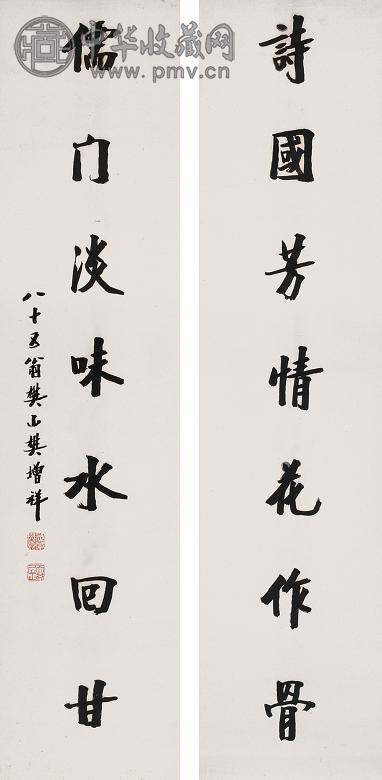 詩國芳情花作骨
儒门淡味水回甘
八十五翁樊山樊增祥
中华收藏网
www.pmv.cn